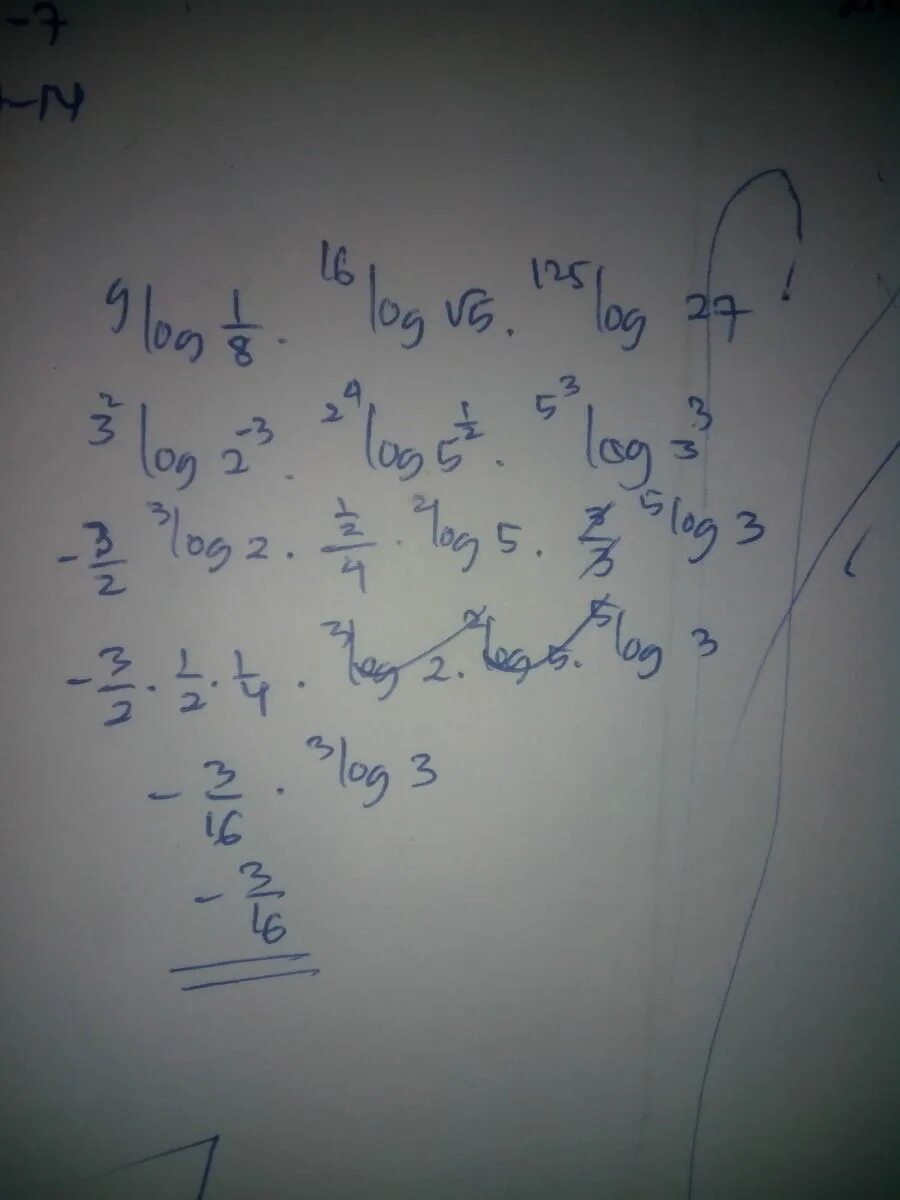 -7
-14
⁹log 1/8 . ¹⁶log √5 . ¹²⁵log 27 !
3²log 2⁻³ . 2⁴log 5^(1/2) . 5³log 3³
-3/2 ³log 2 . (1/2)/4 . ²log 5 . 3/3 ⁵log 3
-3/2 . 1/2 . 1/4 . ³log 2 . ²log 5 . ⁵log 3
-3/16 . ³log 3
-3/16